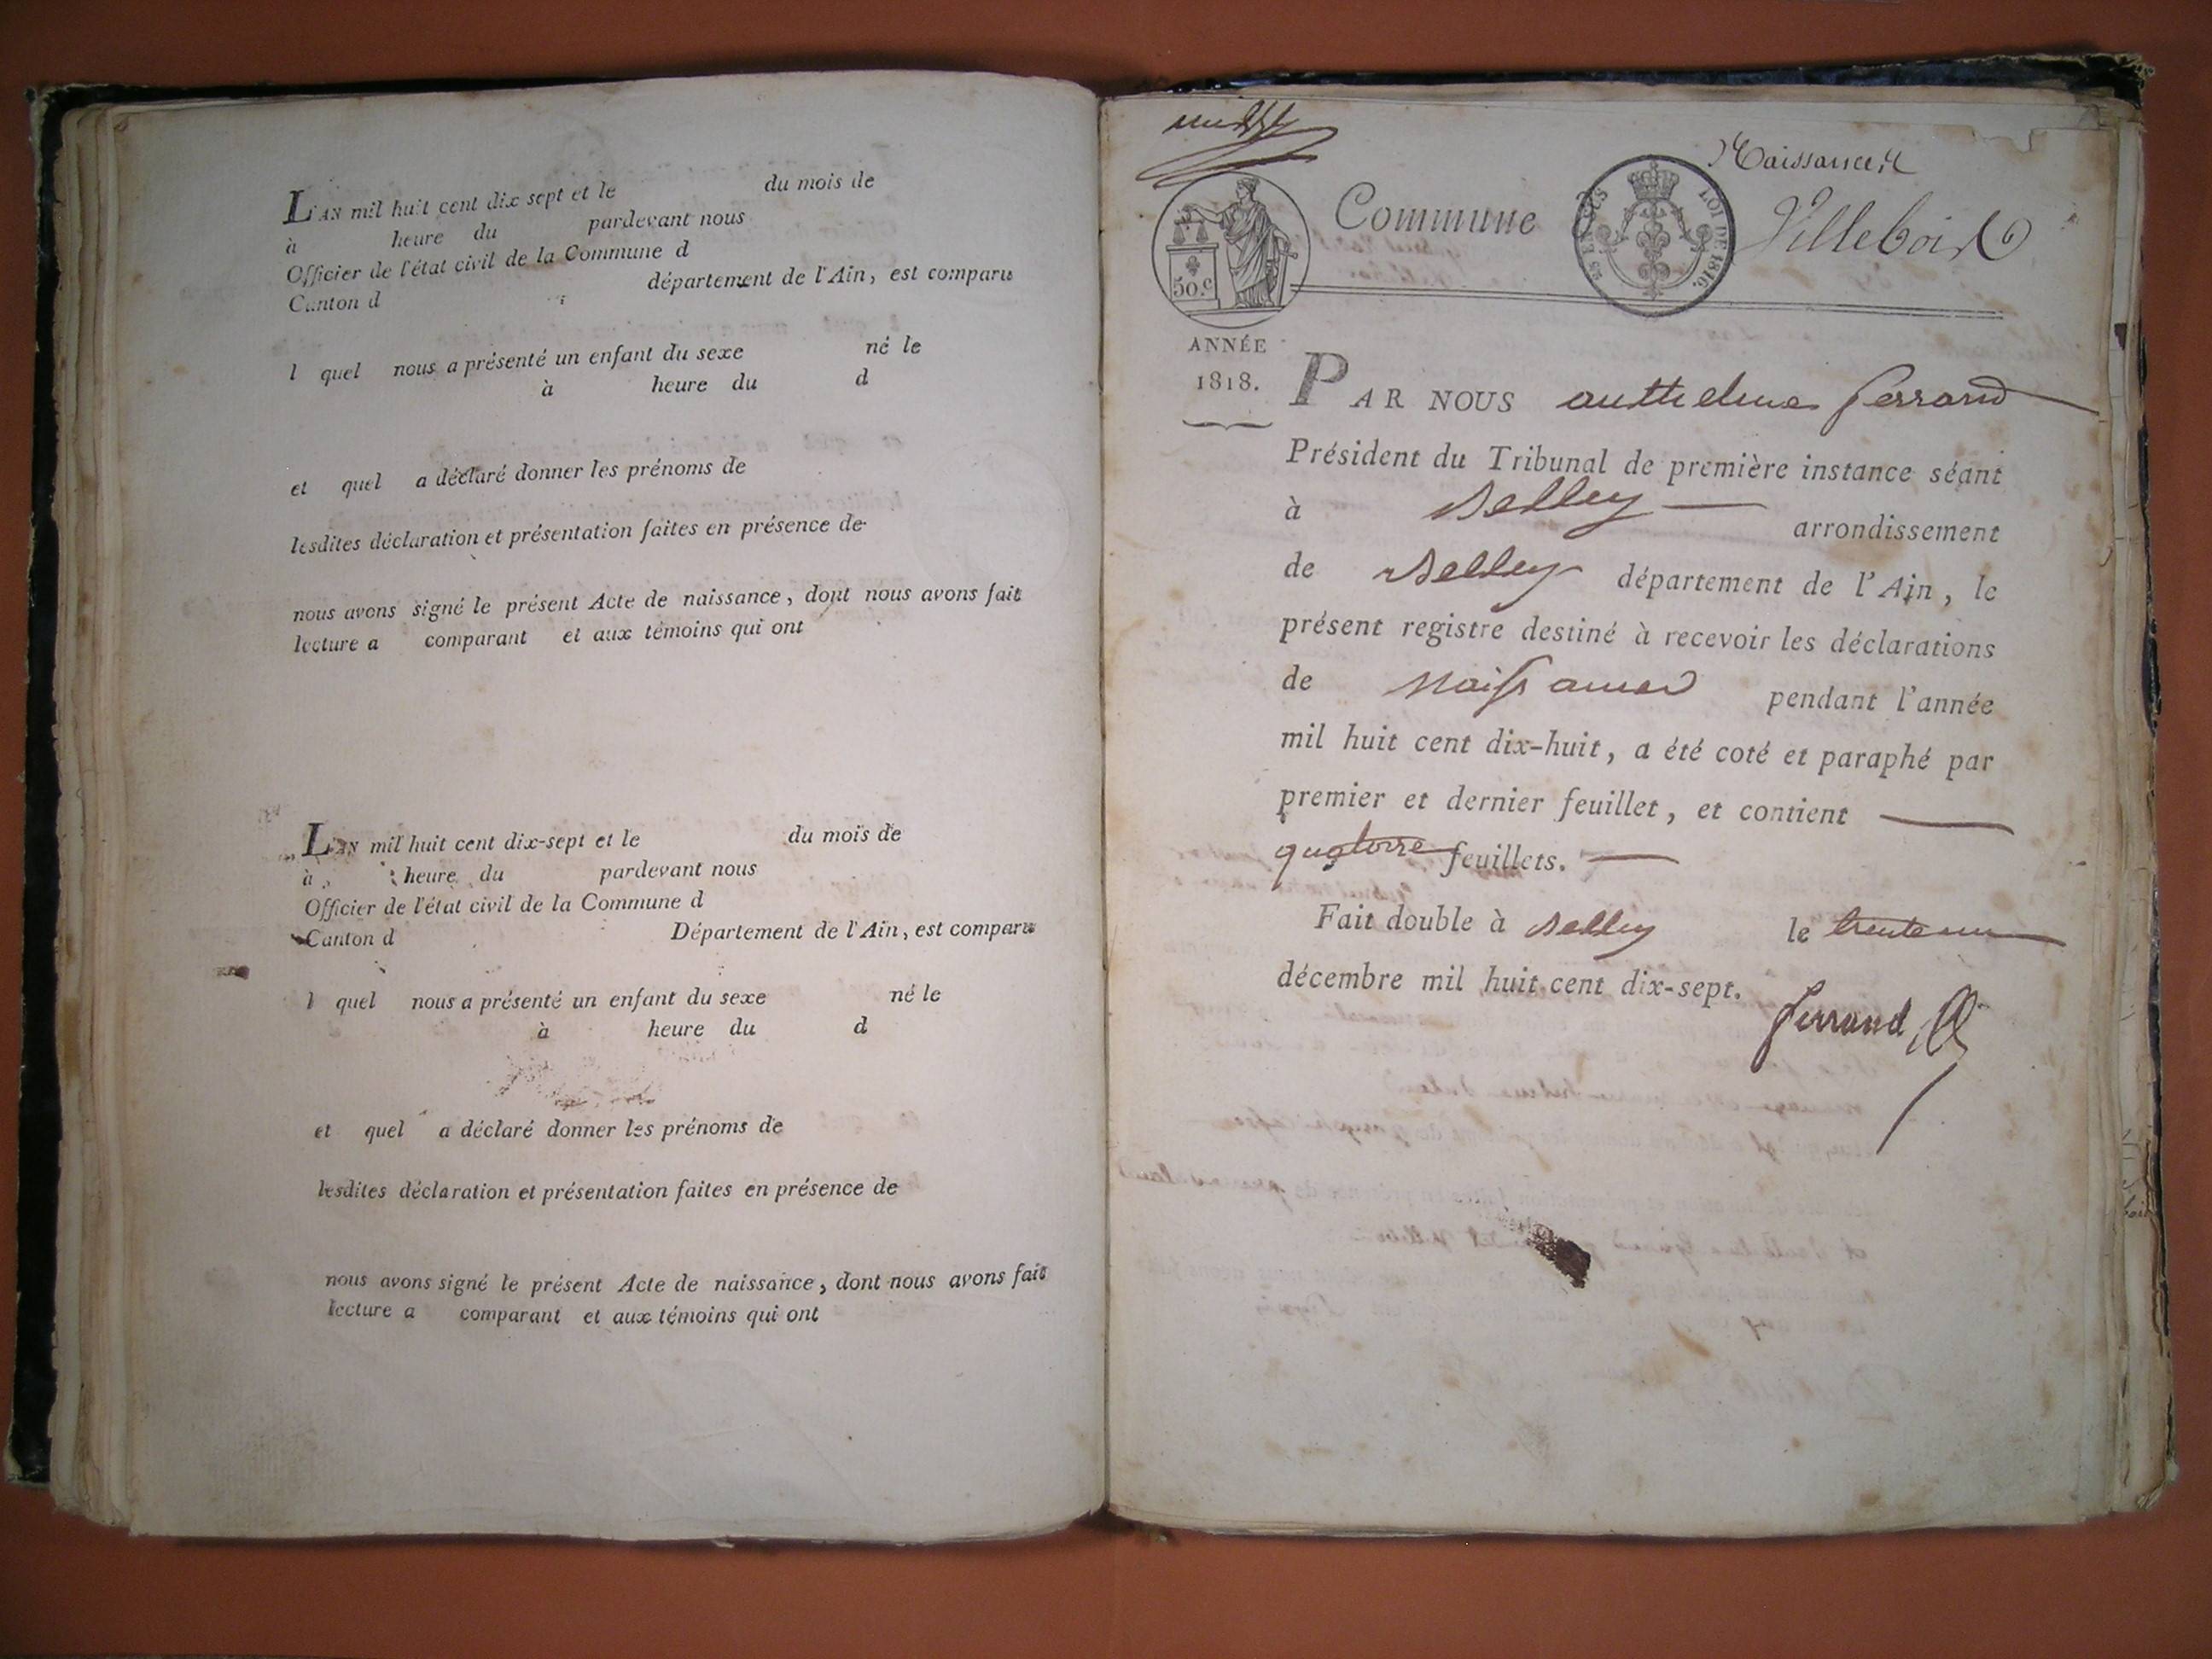 L'AN mil huit cent dix sept et le du mois de
à heure du pardevant nous
Officier de l'état civil de la Commune d
Canton d département de l'Ain, est comparu
l quel nous a présenté un enfant du sexe né le
à heure du d
et quel a déclaré donner les prénoms de
lesdites déclaration et présentation faites en présence de
nous avons signé le présent Acte de naissance, dont nous avons fait
lecture a comparant et aux témoins qui ont
L'AN mil huit cent dix-sept et le du mois de
à heure du pardevant nous
Officier de l'état civil de la Commune d
Canton d Département de l'Ain, est comparu
l quel nous a présenté un enfant du sexe né le
à heure du d
et quel a déclaré donner les prénoms de
lesdites déclaration et présentation faites en présence de
nous avons signé le présent Acte de naissance, dont nous avons fait
lecture a comparant et aux témoins qui ont
Naissances
Commune Villebois
50.c
LOI DE 1816.
ANNÉE
1818.
PAR NOUS anthelme ferrand
Président du Tribunal de première instance séant
à Belley arrondissement
de Belley département de l'Ain, le
présent registre destiné à recevoir les déclarations
de Naissances pendant l'année
mil huit cent dix-huit, a été coté et paraphé par
premier et dernier feuillet, et contient
quatorze feuillets.
Fait double à Belley le trente un
décembre mil huit cent dix-sept.
ferrand